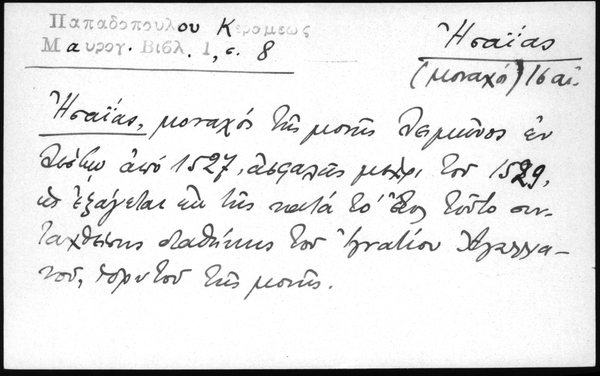 Παπαδοπούλου Κεραμεως
Μαυρογ. Βιβλ. 1, σ. 8
Ἠσαΐας
(μοναχός) 16 αἰ.
Ἠσαΐας, μοναχός τῆς μονῆς Λειμῶνος ἐν
Λέσβῳ ἀπό 1527, ἀσφαλῶς μέχρι τοῦ 1529,
ὡς ἐξάγεται ἐκ τῆς κατά τό ἔτος τοῦτο συν-
ταχθείσης διαθήκης τοῦ Ἰγνατίου Ἀγαλλια-
νοῦ, ἱδρυτοῦ τῆς μονῆς.